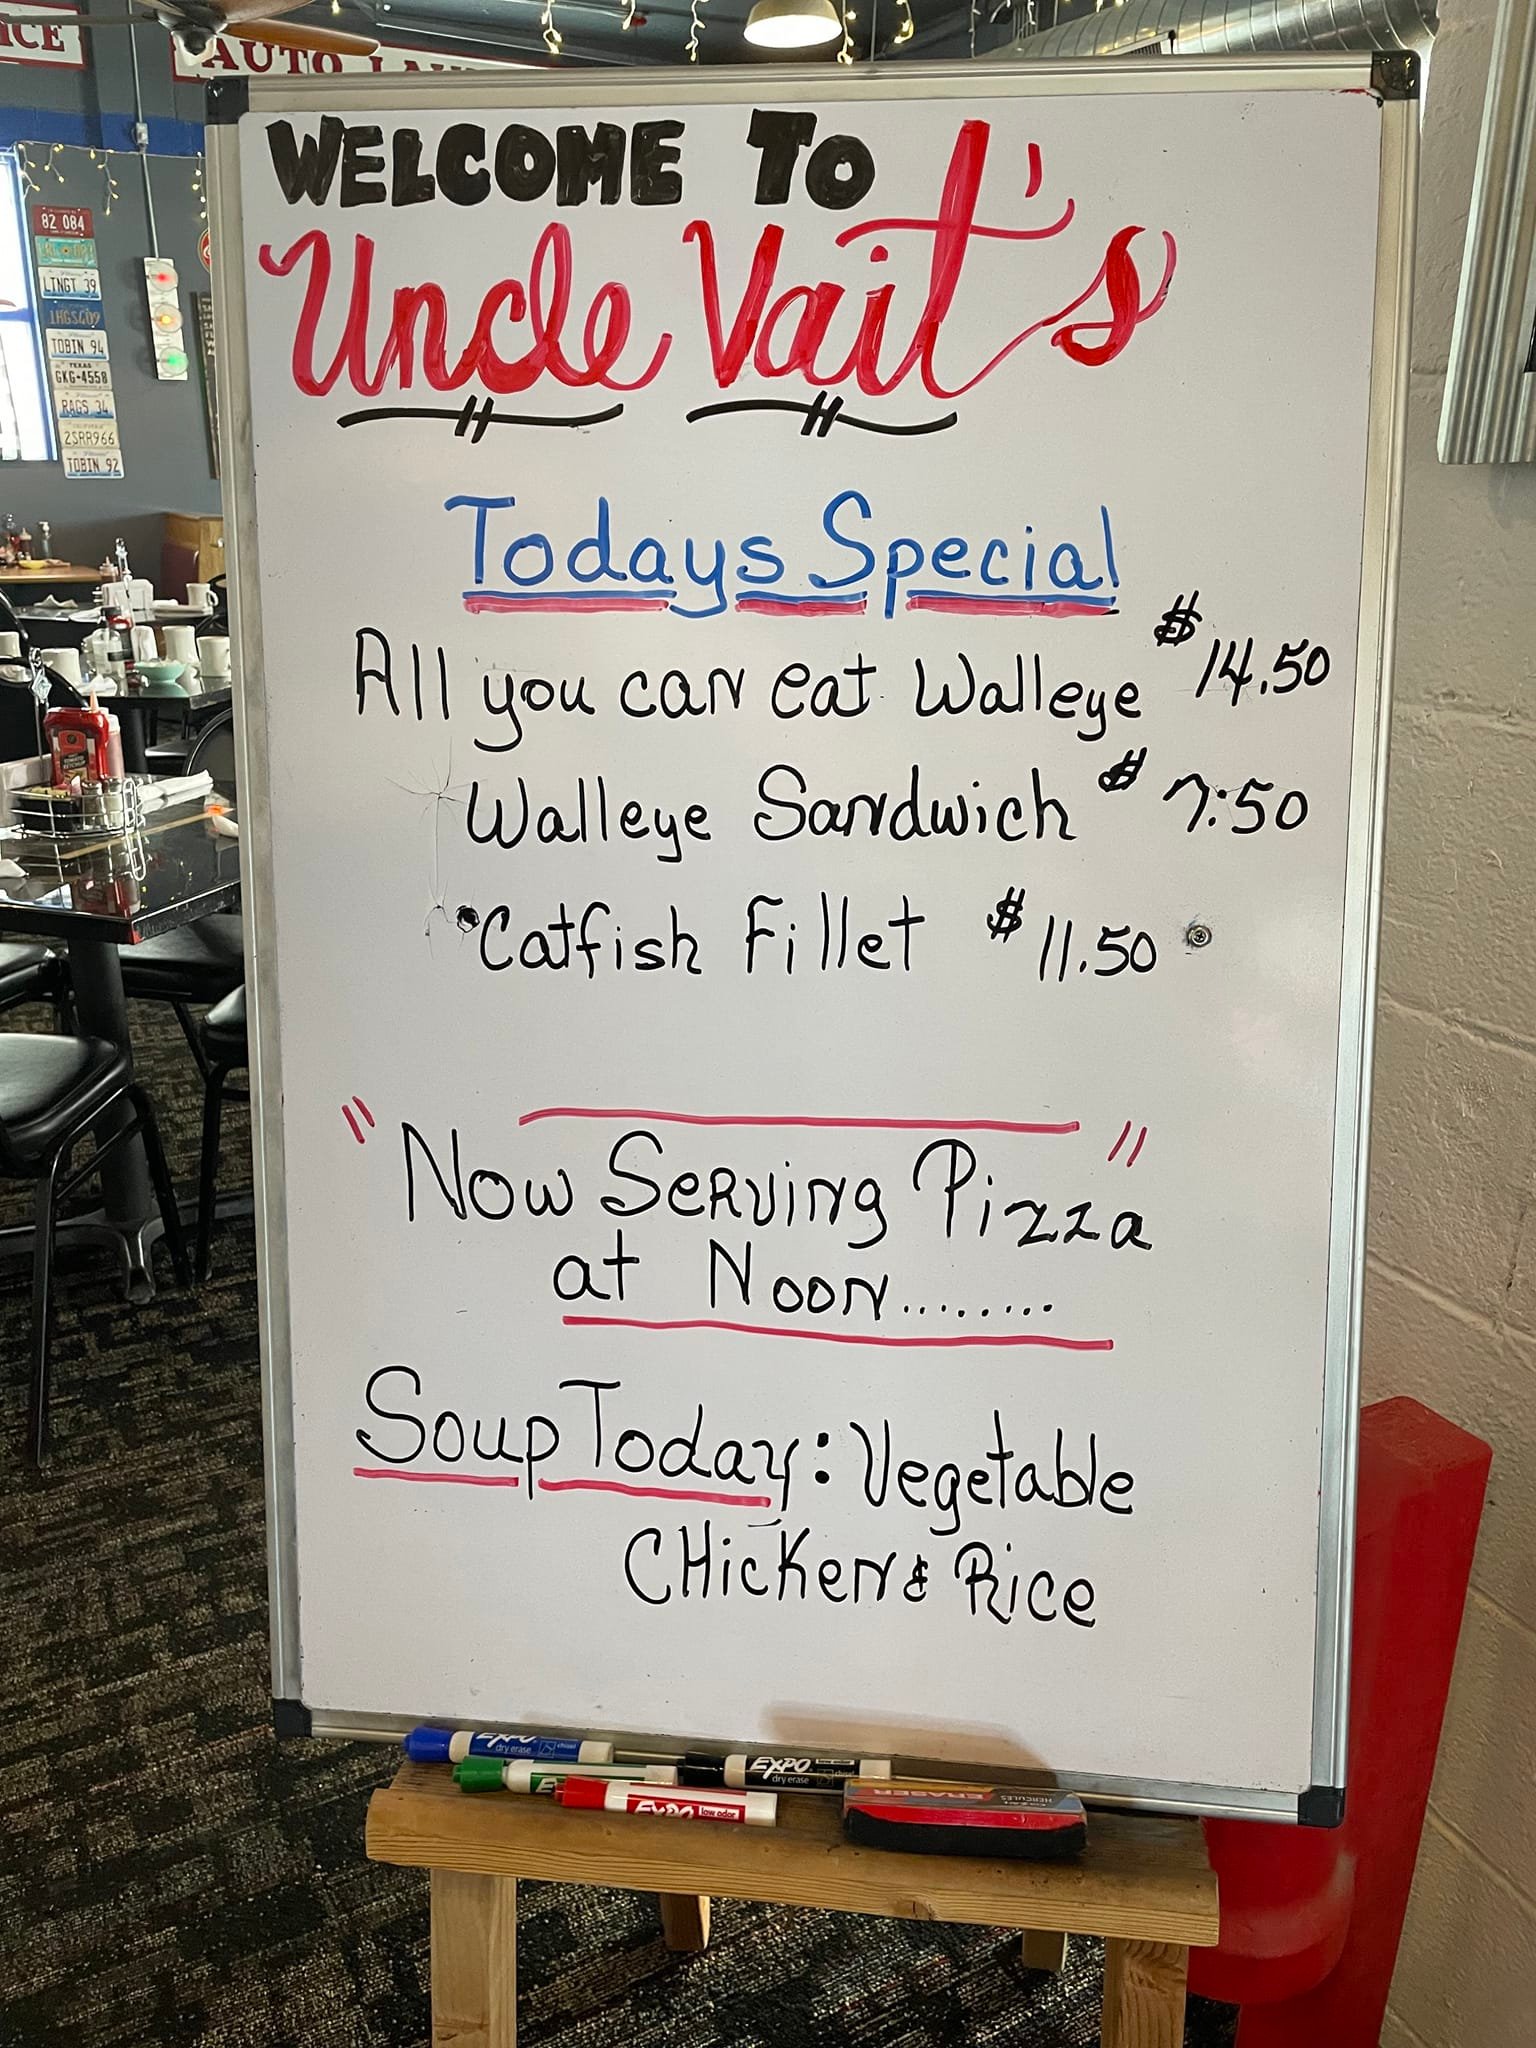 ICE
AUTO
82 084
LTNGT 39
TOBIN 94
TEXAS
GKG-4558
RAGS 34
2SRR966
TOBIN 92
WELCOME TO
Uncle Vait's
Todays Special
All you can eat Walleye $14.50
Walleye Sandwich $7:50
Catfish Fillet $11.50
"Now Serving Pizza"
at Noon........
Soup Today: Vegetable
CHicKen & Rice
EXPO dry erase chisel
EXPO low odor dry erase
EXPO low odor
ERASER HERCULES